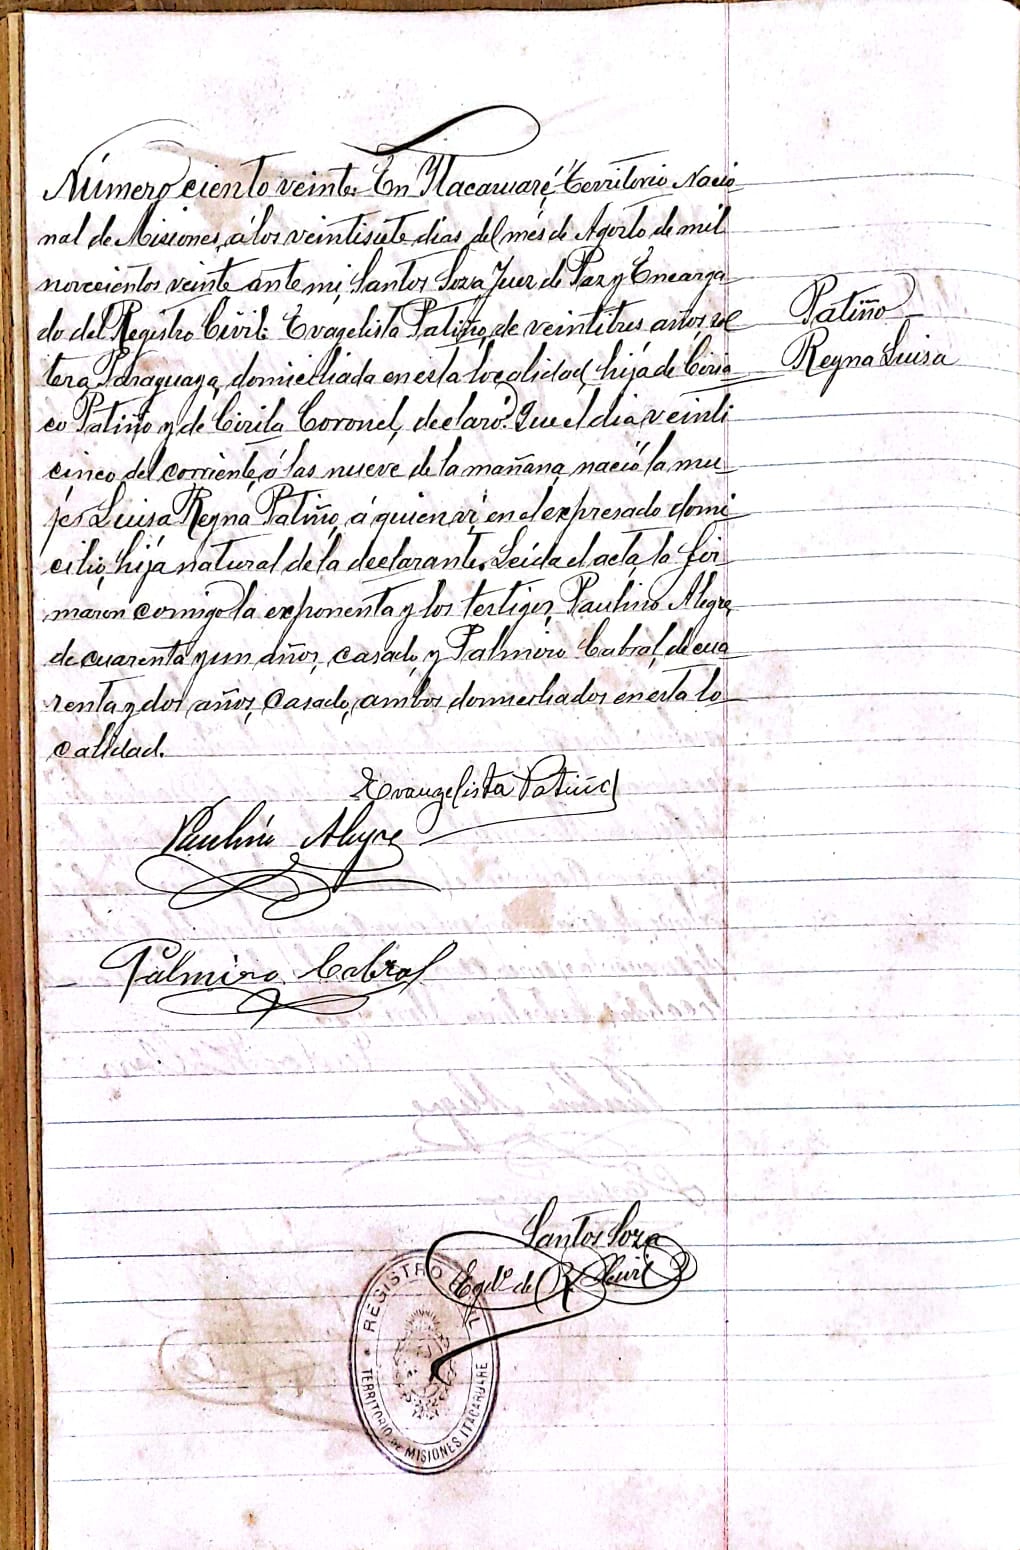 Número ciento veinte. En Itacaruaré, Territorio Nacio
nal de Misiones, á los veintisiete dias del més de Agosto de mil
novecientos veinte ante mi, Santos Soza Juez de Paz y Encarga
do del Registro Civil: Evagelista Patiño, de veintitres años sol
tera, Paraguaya, domiciliada en esta localidad, hija de Ciria
co Patiño y de Cirila Coronel, declaró: Que el dia veinti
cinco del corriente, á las nueve de la mañana, nació la mu
jér Luisa Reyna Patiño, á quien ví, en el expresado domi
cilio, hija natural de la declarante. Leida el acta la fir
maron comigo la exponenta y los testigos, Paulino Alegre,
de cuarenta y un años, casado, y Palmiro Cabral, de cua
renta y dos años, casado, ambos domiciliados en esta lo
calidad.
Patiño
Reyna Luisa
Evangelista Patiño
Paulino Alegre
Palmiro Cabral
Santos Soza
Egdo. de R. Civil
REGISTRO CIVIL
TERRITORIO DE MISIONES ITACARUARE